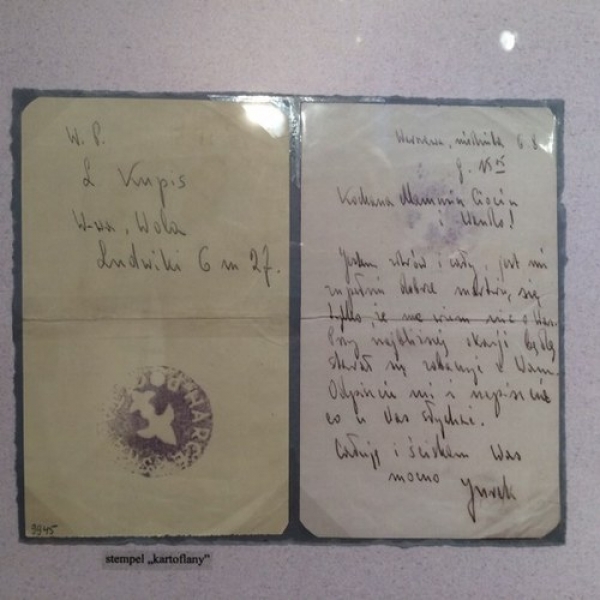 W. P.
L Kupis
W-wa, Wola
Ludwiki 6 m 27.
HARC
9945
stempel „kartoflany”
Warszawa, niedziela 6.8
g. 15 15
Kochana Mamusiu Ciociu
i Wando!
Jestem zdrów i cały, jest mi
zupełnie dobrze martwię się
tylko, że nie wiem nic o Was
Przy najbliższej okazji będę
starał się zobaczyć z Wami
Odpiszcie mi i napiszcie
co u Was słychać.
Całuję i ściskam Was
mocno Jurek